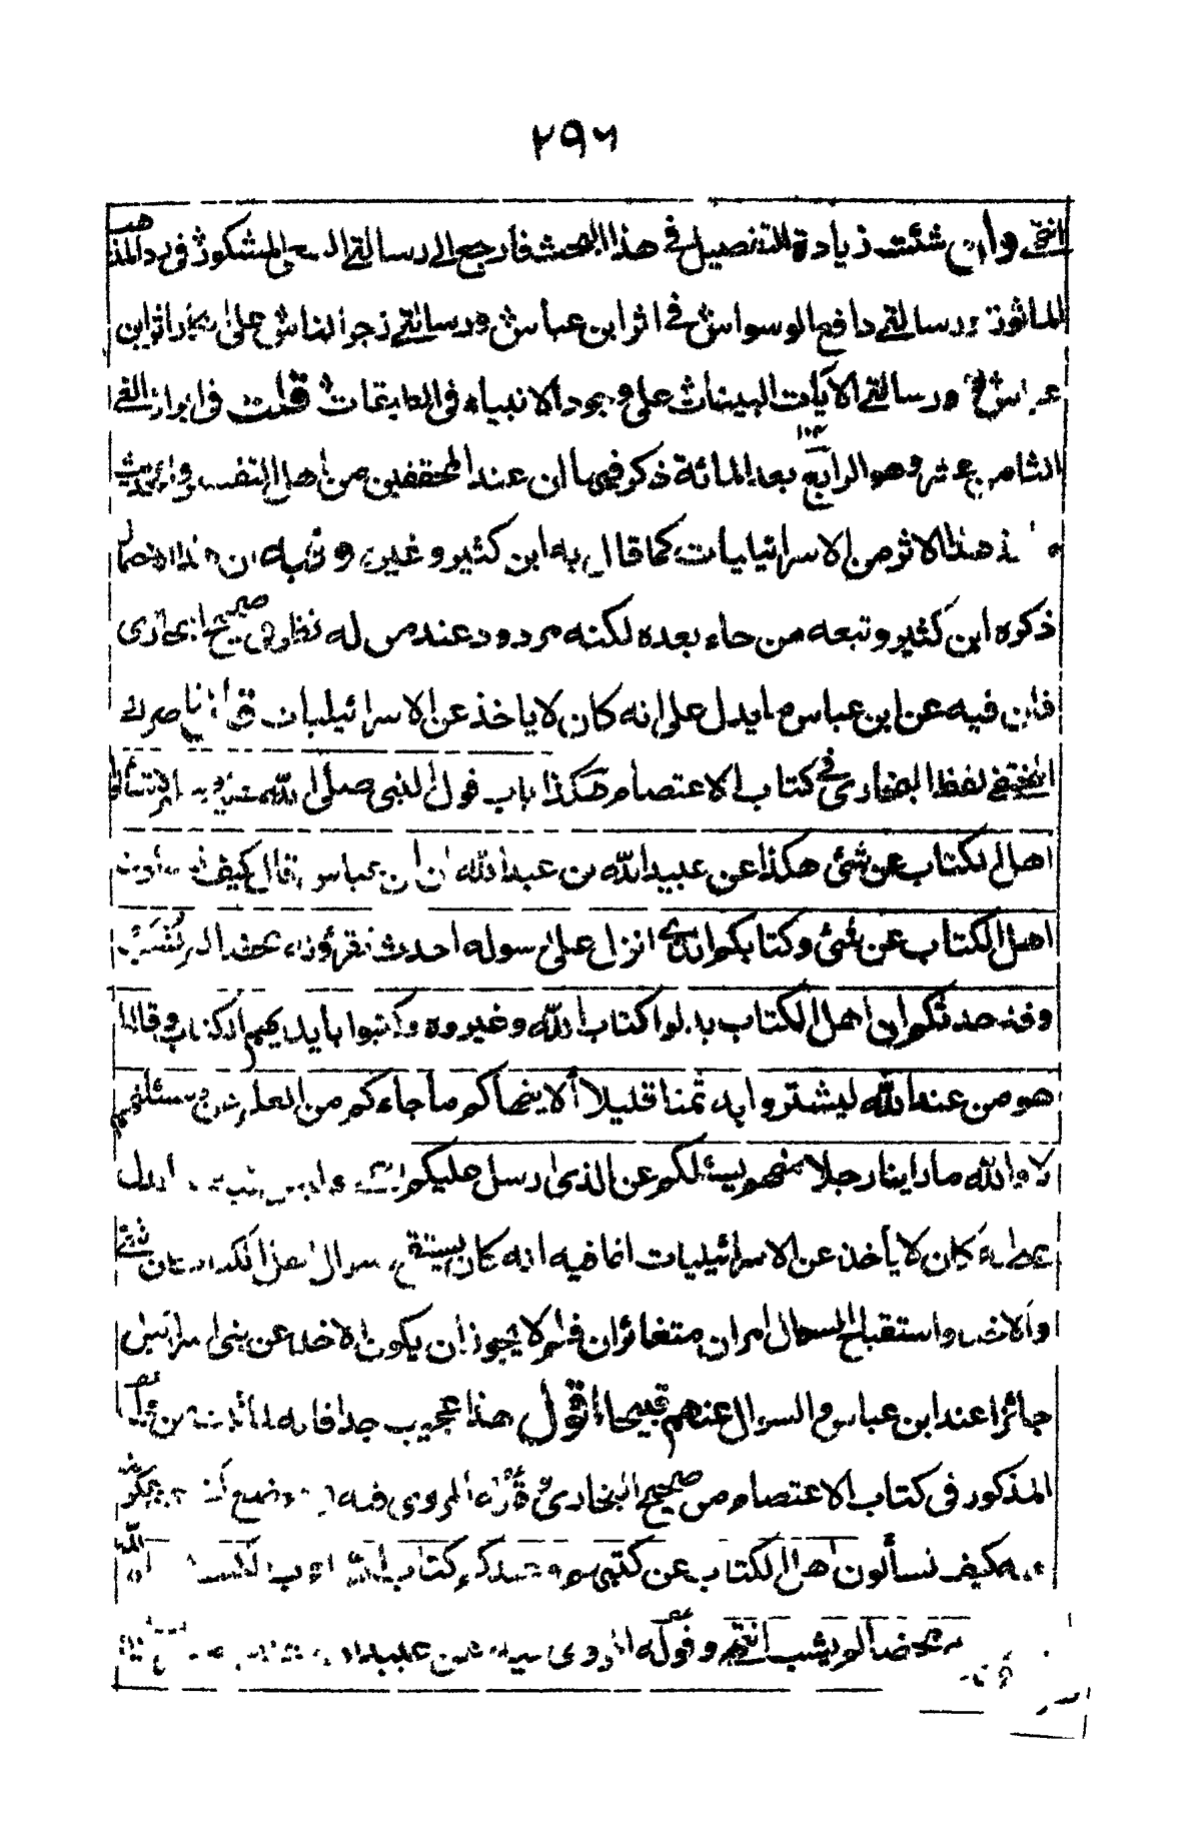 ۲۹۶
انتهى وان شئت زيادة التفصيل في هذا البحث فارجع الى رسالتي السعي المشكور في رد المذهب
الماثور ورسالتي دافع الوسواس في اثر ابن عباس ورسالتي زجر الناس على انكار اثر ابن
عباس ورسالتي الآيات البينات على وجود الانبياء في الطبقات قلت في ابراز الغي
الثامن عشر وهو الرابع ۱۰۴ بعد المائة ذكر فيها ان عند المحققين من اهل التفسير والحديث
هذا الاثر من الاسرائيليات كما قال به ابن كثير وغيره وفيه ان هذا الاحتمال
ذكره ابن كثير وتبعه من جاء بعده لكنه مردود عند من له نظر في صحيح البخاري
فان فيه عن ابن عباس ما يدل على انه كان لا ياخذ عن الاسرائيليات قال ناصرك
المختفي لفظ البخاري في كتاب الاعتصام هكذا باب قول النبي صلى الله عليه وسلم لا تسألوا
اهل الكتاب عن شئ هكذا عن عبيد الله بن عبد الله ان ابن عباس قال كيف تسألون
اهل الكتاب عن شئ وكتابكم الذي انزل على رسوله احدث تقرؤنه محضا لم يشب
وقد حدثكم ان اهل الكتاب بدلوا كتاب الله وغيروه وكتبوا بايديهم الكتاب وقالوا
هو من عند الله ليشتروا به ثمنا قليلا ألا ينهاكم ما جاءكم من العلم عن مسئلتهم
لا والله ما راينا رجلا منهم يسئلكم عن الذي ارسل عليكم وليس فيه ما يدل
على انه كان لا يأخذ عن الاسرائيليات انما فيه انه كان يستقبح سوال اهل الكتاب عن شئ
والاخذ واستقباح السوال امران متغائران فلم لا يجوز ان يكون الاخذ عن بني اسرائيل
جائزا عند ابن عباس والسوال عنهم قبيحا اقول هذا عجيب جدا فانه
المذكور في كتاب الاعتصام من صحيح البخاري قوله المروي فيه في موضع آخر
كيف تسألون اهل الكتاب عن كتبهم وعندكم كتاب الله اقرب الكتب الله
محضا لم يشب انتهى وقوله المروي فيه عن عبيد الله